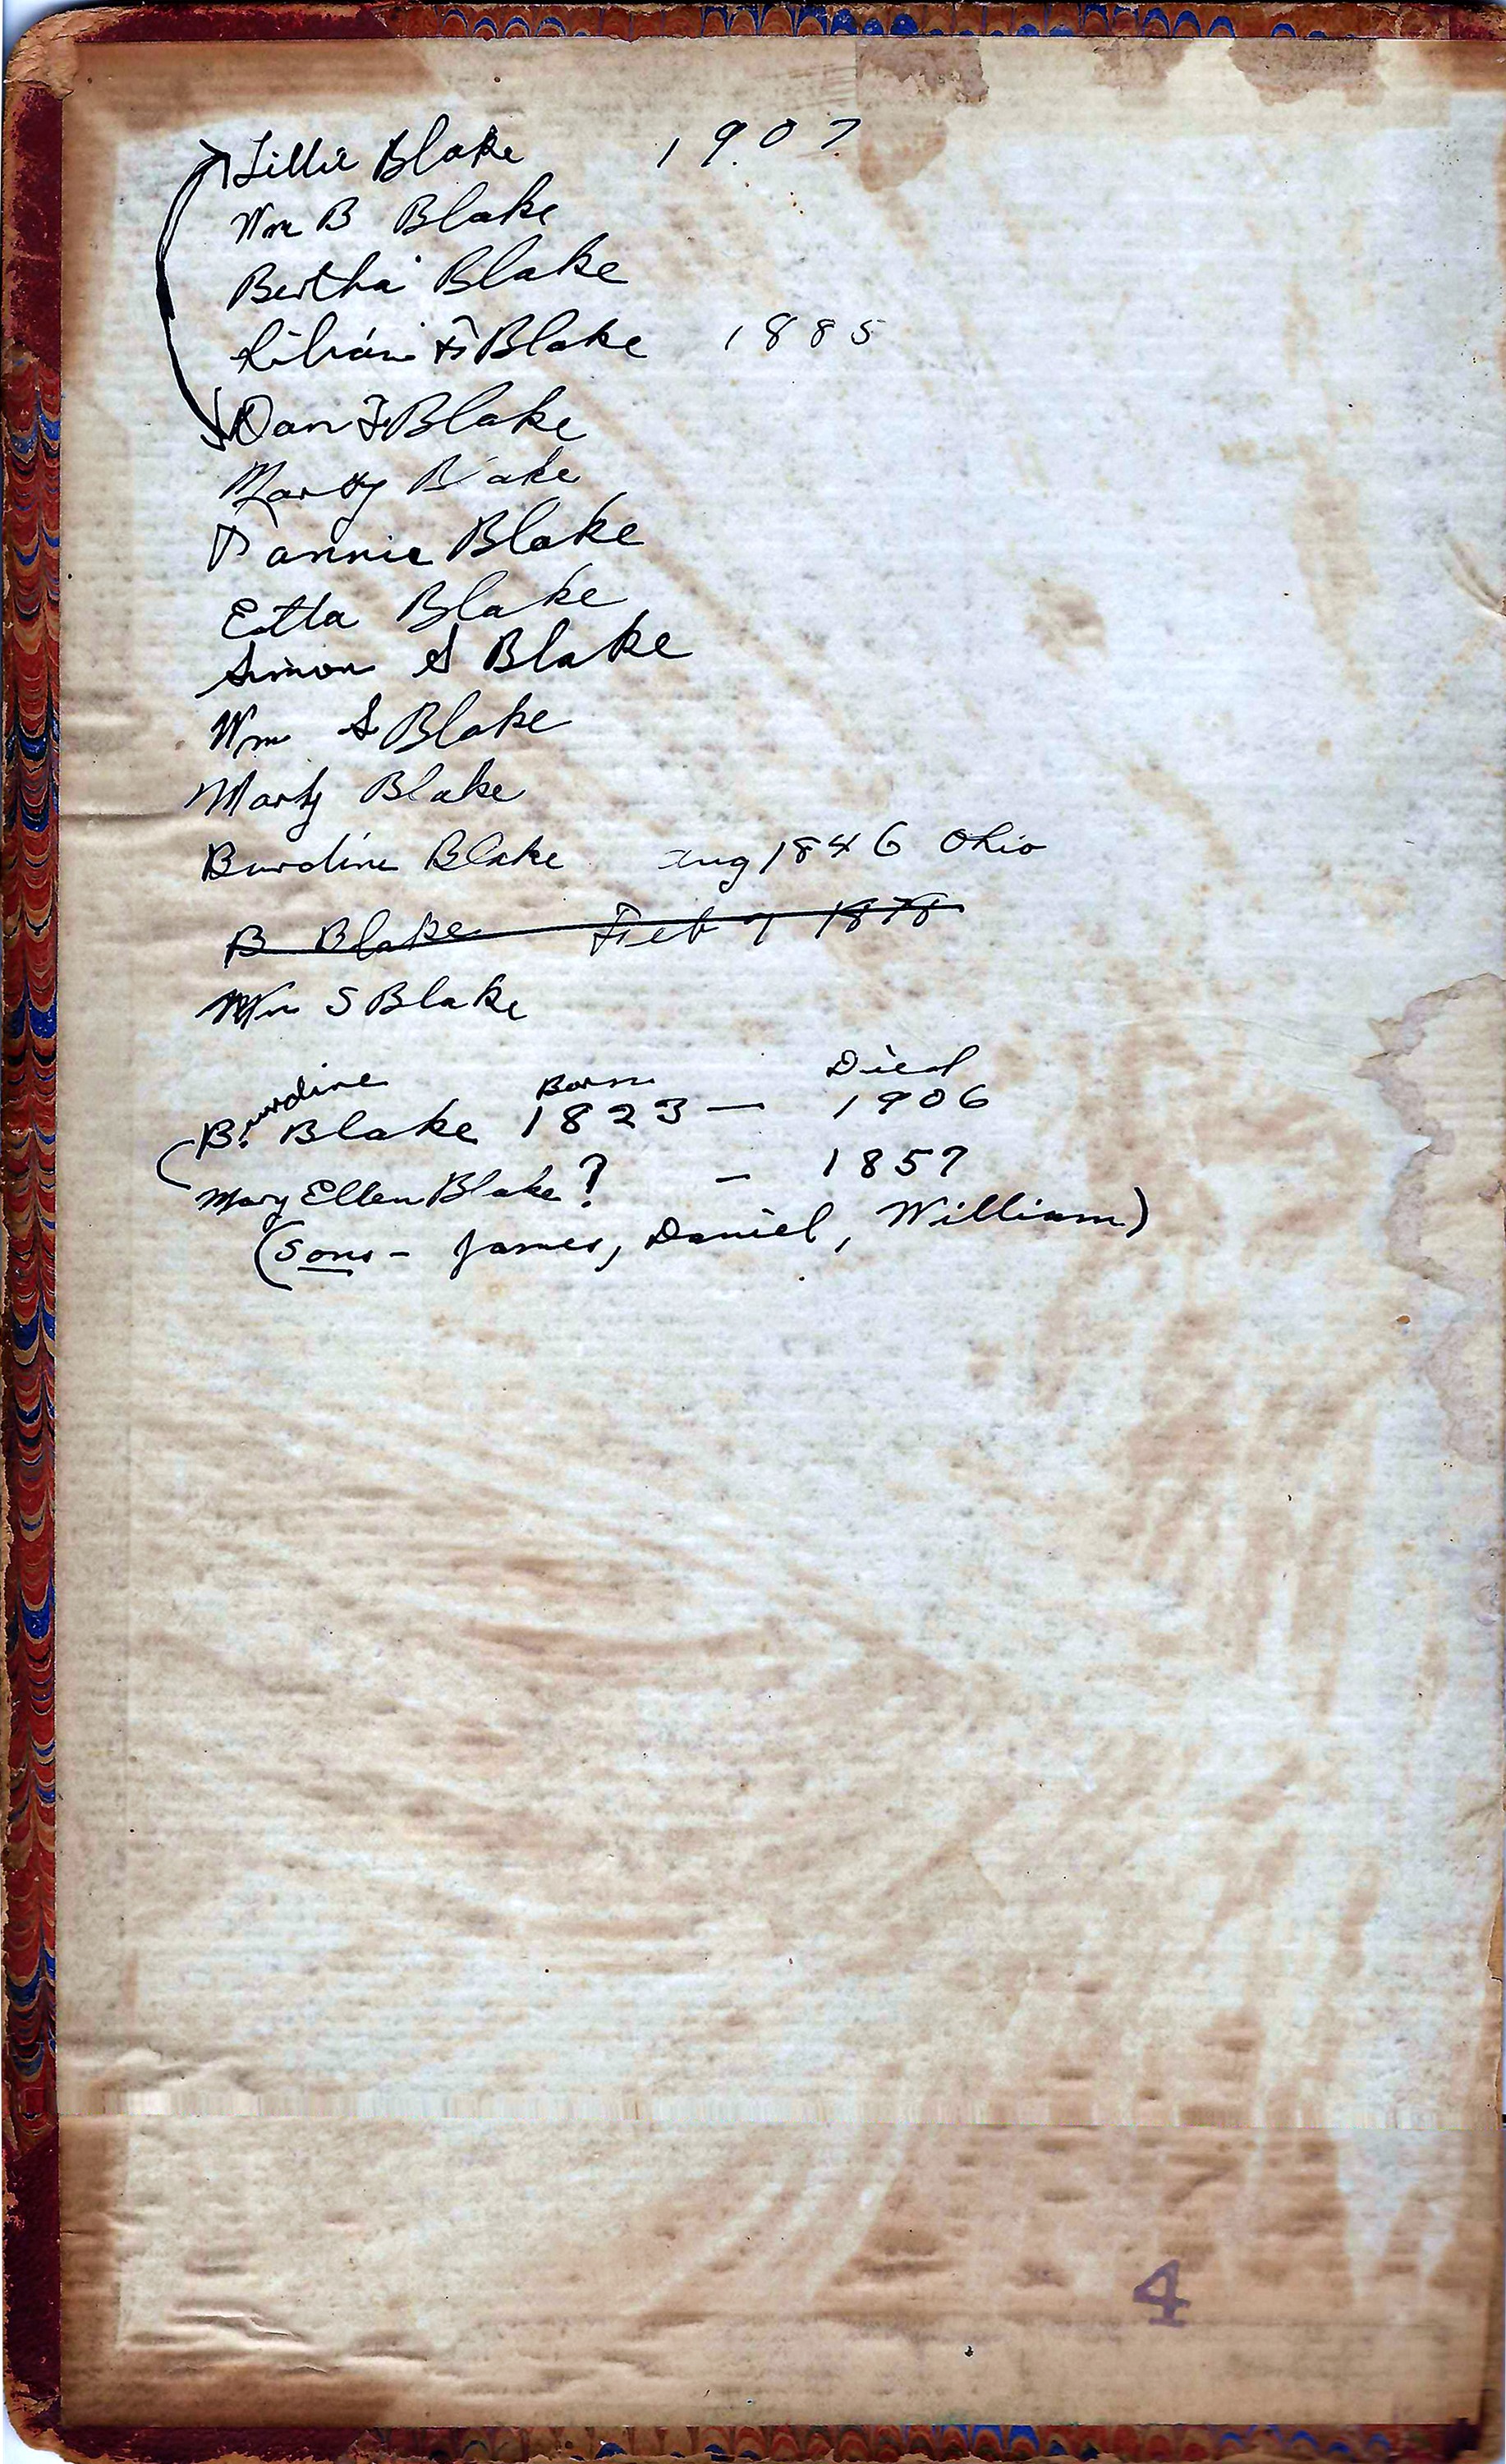 Lillie Blake 1907
Wm B Blake
Bertha Blake
Lilian F Blake 1885
Dan F Blake
Marty B ake
Fannie Blake
Etta Blake
Simon S Blake
Wm S Blake
Marty Blake
Burdine Blake Aug 1846 Ohio
B Blake Feb 7 1878
Wm S Blake
Burdine Born Died
B. Blake 1823 — 1906
Mary Ellen Blake? — 1857
(Sons - James, Daniel, William)
4